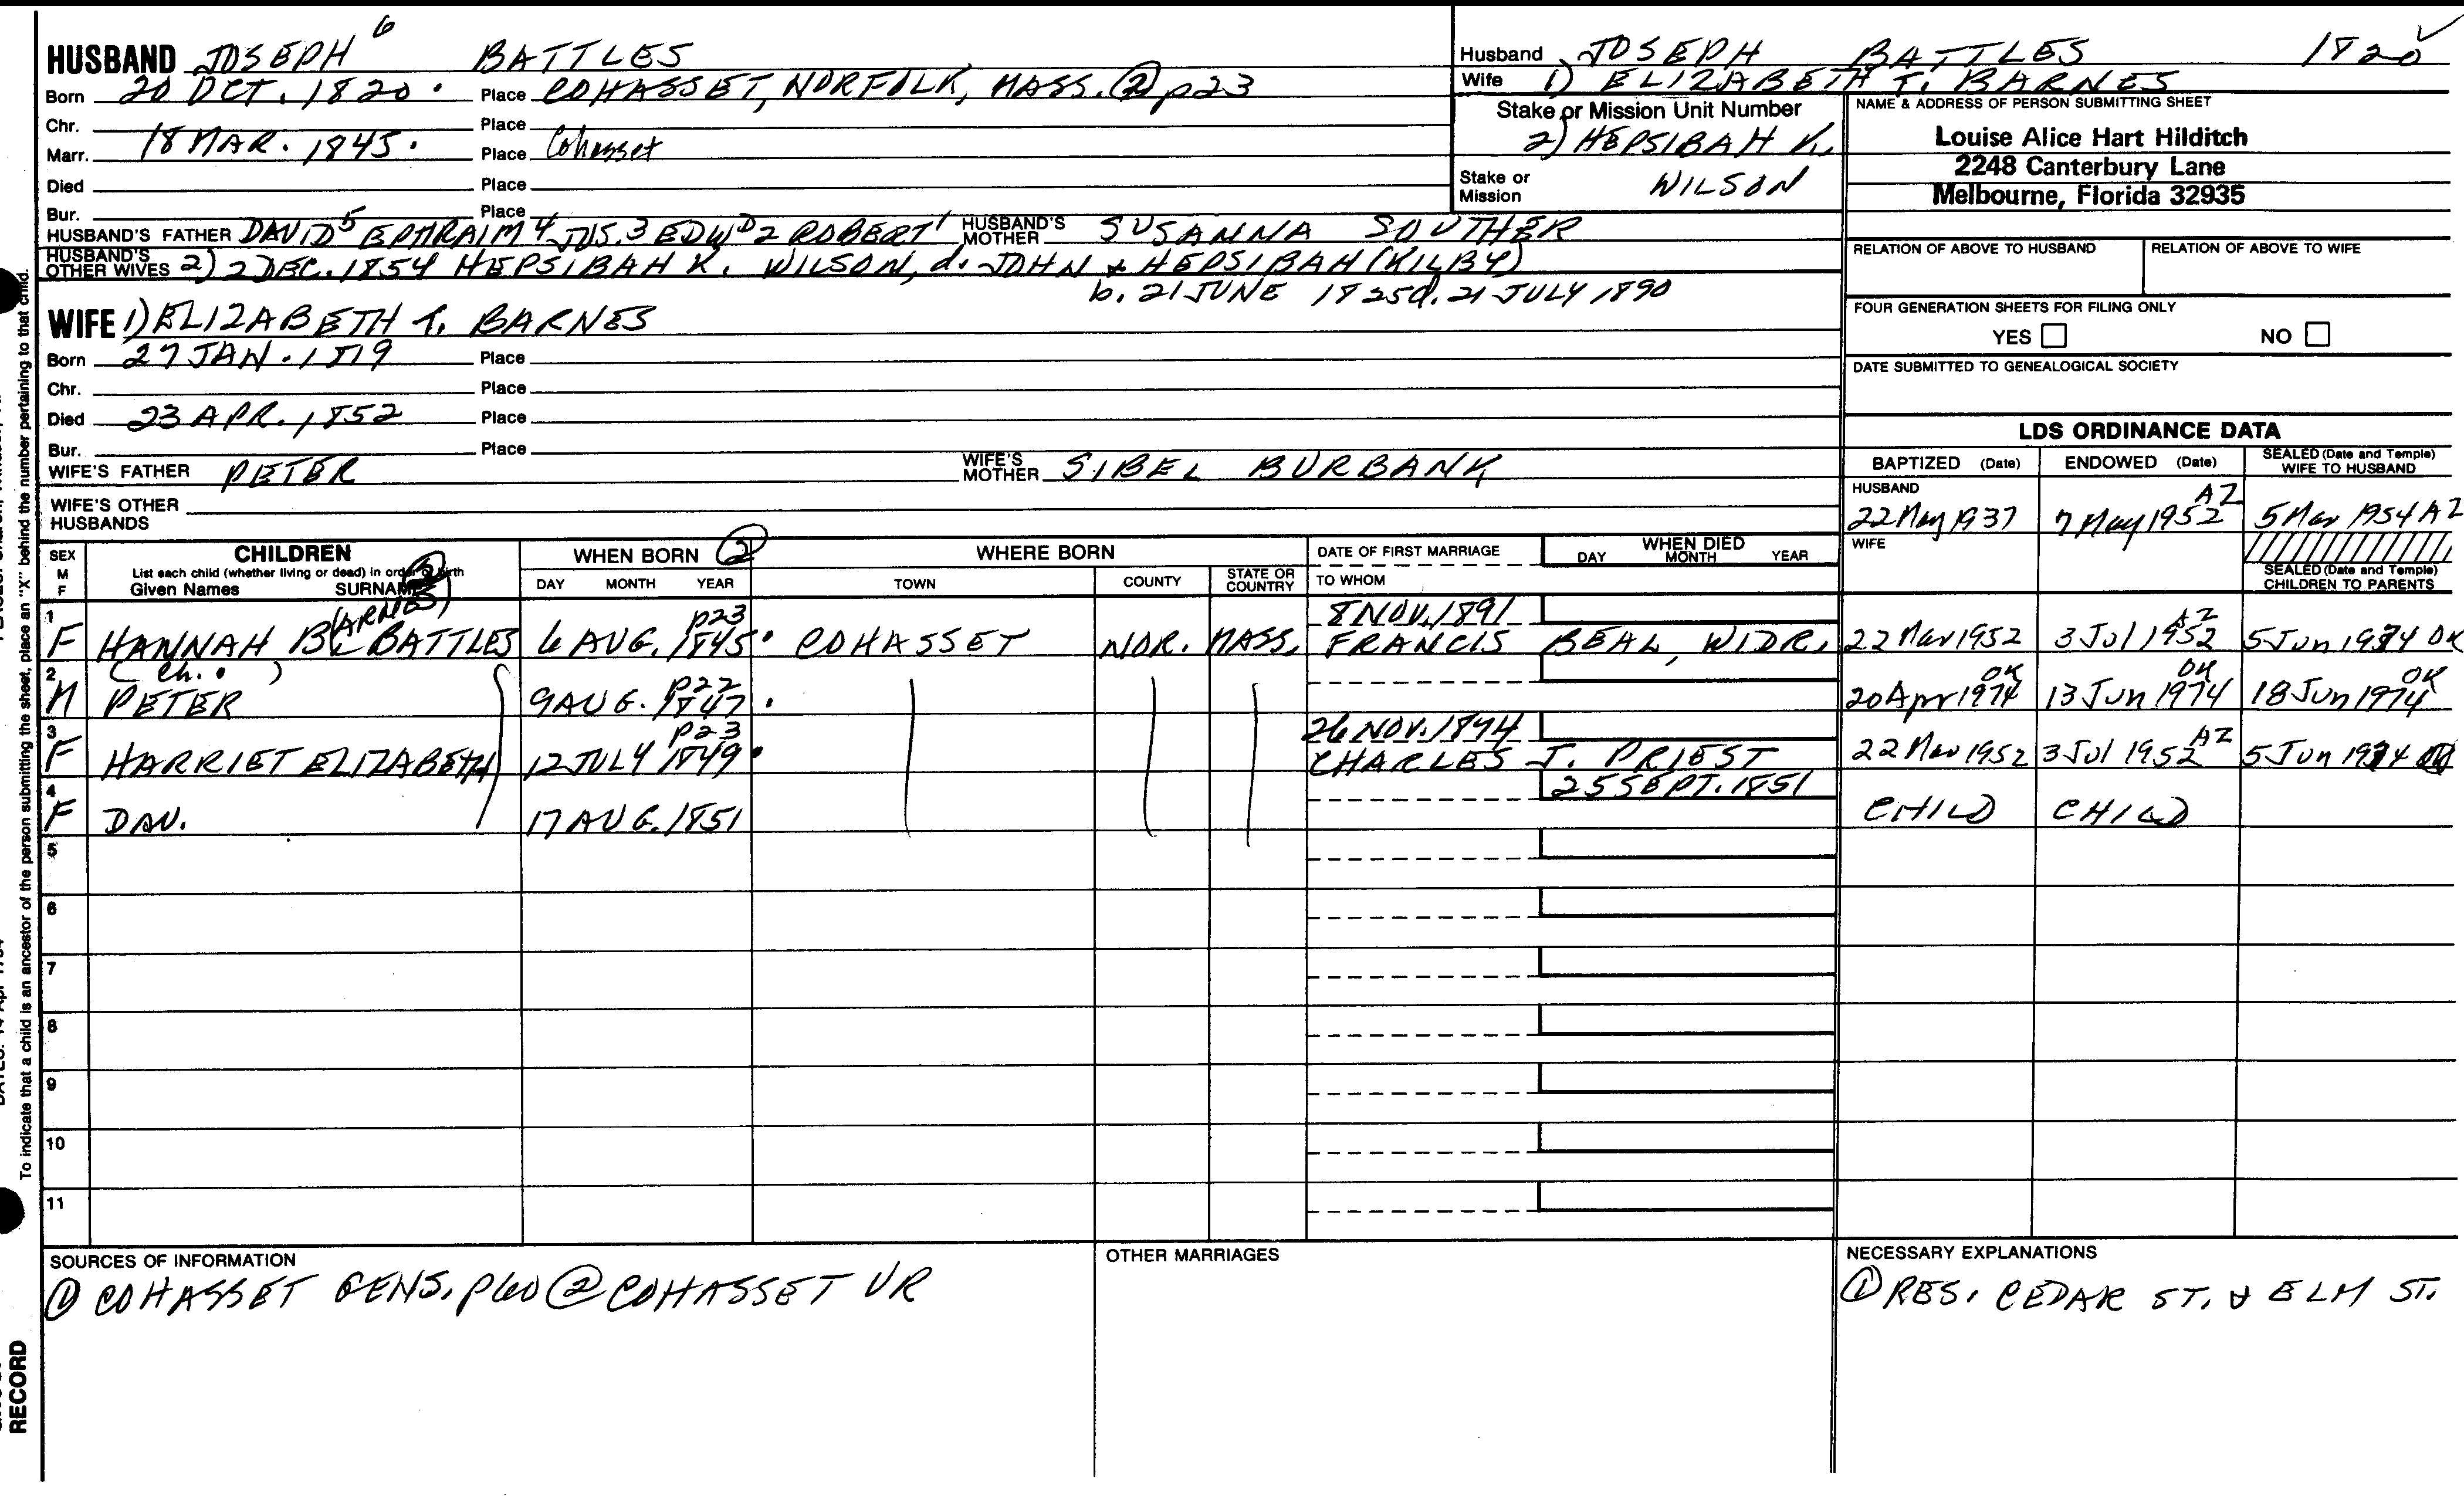 HUSBAND JOSEPH 6 BATTLES
Born 20 OCT. 1820. Place COHASSET, NORFOLK, MASS. ② p23
Chr. Place
Marr. 18 MAR. 1845. Place Cohasset
Died Place
Bur. Place
HUSBAND'S FATHER DAVID 5 EPHRAIM 4 JOS. 3 EDWD 2 ROBERT 1 HUSBAND'S MOTHER SUSANNA SOUTHER
HUSBAND'S OTHER WIVES 2) 2 DEC. 1854 HEPSIBAH K. WILSON, d. JOHN & HEPSIBAH (KILBY)
b. 21 JUNE 1825 d. 21 JULY 1890
WIFE 1) ELIZABETH T. BARNES
Born 27 JAN. 1819 Place
Chr. Place
Died 23 APR. 1852 Place
Bur. Place
WIFE'S FATHER PETER WIFE'S MOTHER SIBEL BURBANK
WIFE'S OTHER HUSBANDS
Husband JOSEPH BATTLES 1820
Wife 1) ELIZABETH T. BARNES
Stake or Mission Unit Number
2) HEPSIBAH K.
Stake or Mission WILSON
NAME & ADDRESS OF PERSON SUBMITTING SHEET
Louise Alice Hart Hilditch
2248 Canterbury Lane
Melbourne, Florida 32935
RELATION OF ABOVE TO HUSBAND RELATION OF ABOVE TO WIFE
FOUR GENERATION SHEETS FOR FILING ONLY
YES NO
DATE SUBMITTED TO GENEALOGICAL SOCIETY
LDS ORDINANCE DATA
BAPTIZED (Date) ENDOWED (Date) SEALED (Date and Temple) WIFE TO HUSBAND
HUSBAND
22 May 1937 7 May 1952 AZ 5 Mar 1954 AZ
WIFE
SEALED (Date and Temple) CHILDREN TO PARENTS
SEX M F CHILDREN WHEN BORN ② WHERE BORN DATE OF FIRST MARRIAGE WHEN DIED
List each child (whether living or dead) in order of birth
Given Names SURNAME DAY MONTH YEAR TOWN COUNTY STATE OR COUNTRY TO WHOM DAY MONTH YEAR
1 F HANNAH B(ARNES) BATTLES 6 AUG. 1845. p23 COHASSET NOR. MASS. 8 NOV. 1891 FRANCIS BEAL, WIDR. 22 Mar 1952 3 Jul 1952 AZ 5 Jun 1974 OK
(Ch. )
2 M PETER 9 AUG. 1847. p22 20 Apr 1974 OK 13 Jun 1974 OK 18 Jun 1974 OK
3 F HARRIET ELIZABETH 12 JULY 1849. p23 26 NOV. 1874 CHARLES J. PRIEST 22 Mar 1952 3 Jul 1952 AZ 5 Jun 1974 OK
4 F DAU. 17 AUG. 1851 25 SEPT. 1851 CHILD CHILD
5
6
7
8
9
10
11
SOURCES OF INFORMATION
① COHASSET GENS. p60 ② COHASSET VR
OTHER MARRIAGES
NECESSARY EXPLANATIONS
① RES. CEDAR ST. & ELM ST.
To indicate that a child is an ancestor of the person submitting the sheet, place an "X" behind the number pertaining to that child.
RECORD